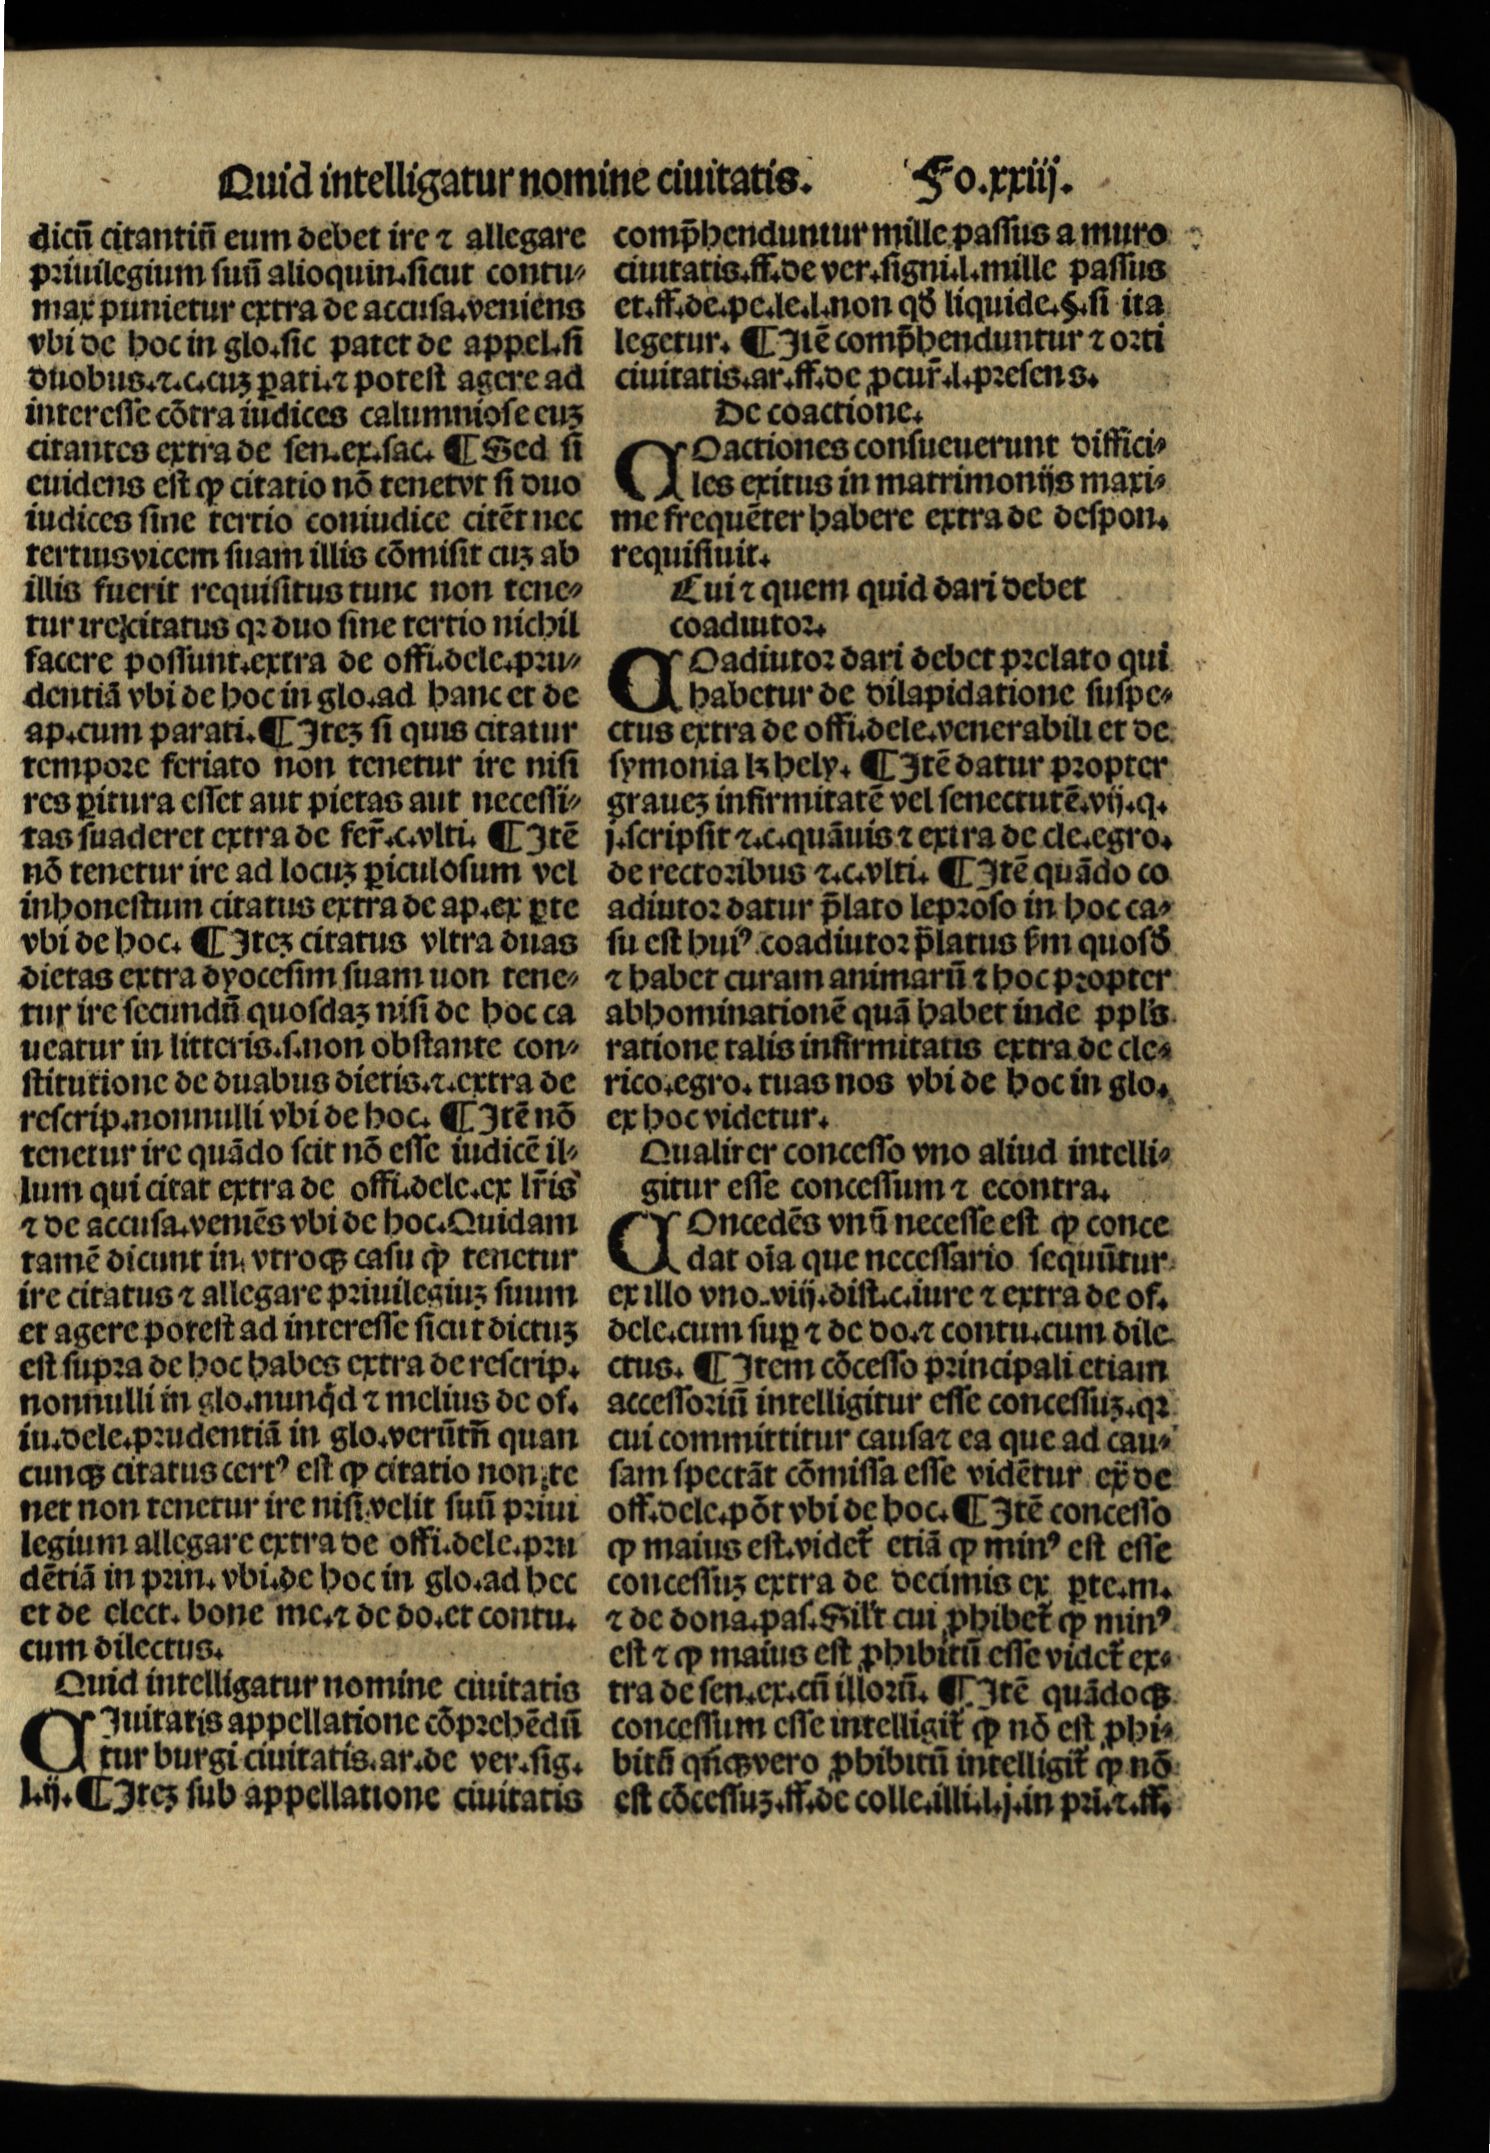 Quid intelligatur nomine ciuitatis. Fo.xxiij.
dicū citantiū eum debet ire ⁊ allegare
priuilegium suū alioquin.sicut contu-
max punietur extra de accusa.veniens
vbi de hoc in glo.sic patet de appel.si
duobus.⁊.c.cuȝ ꝑati.⁊ potest agere ad
interesse cōtra iudices calumniose euȝ
citantes extra de sen.ex.sac. ¶ Sed si
euidens est ꝙ citatio nō tenet vt si duo
iudices sine tertio coniudice citēt nec
tertius vicem suam illis cōmisit cuȝ ab
illis fuerit requisitus tunc non tene-
tur ire citatus qꝛ duo sine tertio nichil
facere possunt.extra de offi.dele.pru-
dentiā vbi de hoc in glo.ad hanc et de
ap.cum parati. ¶ Iteȝ si quis citatur
tempore feriato non tenetur ire nisi
res ꝑitura esset aut pietas aut necessi-
tas suaderet extra de fer̄.c.vlti. ¶ Itē
nō tenetur ire ad locuȝ ꝑiculosum vel
inhonestum citatus extra de ap.ex ꝑte
vbi de hoc. ¶ Iteȝ citatus vltra duas
dietas extra dyocesim suam uon tene-
tur ire secundū quosdaȝ nisi de hoc ca
ueatur in litteris.s.non obstante con-
stitutione de duabus dietis.⁊.extra de
rescrip.nonnulli vbi de hoc. ¶ Itē nō
tenetur ire quādo scit nō esse iudicē il-
lum qui citat extra de offi.dele.ex lr̄is
⁊ de accusa.veniēs vbi de hoc.Quidam
tamē dicunt in vtroqȝ casu ꝙ tenetur
ire citatus ⁊ allegare priuilegiuȝ suum
et agere potest ad interesse sicut dictuȝ
est supra de hoc habes extra de rescrip.
nonnulli in glo.nunq̇d ⁊ melius de of.
iu.dele.prudentiā in glo.verūtn̄ quan
cunqȝ citatus certꝰ est ꝙ citatio non te
net non tenetur ire nisi velit suū priui
legium allegare extra de offi.dele.pru
dētiā in prin. vbi de hoc in glo.ad hec
et de elect. bone me.⁊ de do.et contu.
cum dilectus.
Quid intelligatur nomine ciuitatis
CIuitatis appellatione cōprehēdū
tur burgi ciuitatis.ar.de ver.sig.
l.ij. ¶ Iteȝ sub appellatione ciuitatis
comp̄henduntur mille passus a muro
ciuitatis.ff.de ver.signi.l.mille passus
et.ff.de.pe.le.l.non qđ liquide.§.si ita
legetur. ¶ Itē comp̄henduntur ⁊ orti
ciuitatis.ar.ff.de ꝓcur̄.l.presens.
De coactione.
COactiones consueuerunt diffici-
les exitus in matrimonijs maxi-
me frequēter habere extra de despon.
requisiuit.
Cui ⁊ quem quid dari debet
coadiutor.
COadiutor dari debet prelato qui
habetur de dilapidatione suspe-
ctus extra de offi.dele.venerabili et de
symonia lȝ hely. ¶ Itē datur propter
graueȝ infirmitatē vel senectutē.vij.q.
j.scripsit ⁊.c.quāuis ⁊ extra de cle.egro.
de rectoribus ⁊.c.vlti. ¶ Itē quādo co
adiutor datur p̄lato leproso in hoc ca-
su est huiꝰ coadiutor p̄latus ẜm quosđ
⁊ habet curam animarū ⁊ hoc propter
abhominationē quā habet inde ppl's
ratione talis infirmitatis extra de cle-
rico.egro. tuas nos vbi de hoc in glo.
ex hoc videtur.
Qualiter concesso vno aliud intelli-
gitur esse concessum ⁊ econtra.
COncedēs vnū necesse est ꝙ conce
dat oīa que necessario sequūtur
ex illo vno..viij.dist.c.iure ⁊ extra de of.
dele.cum suꝑ ⁊ de do.⁊ contu.cum dile
ctus. ¶ Item cōcesso principali etiam
accessoriū intelligitur esse concessuȝ.qꝛ
cui committitur causa ⁊ ea que ad cau-
sam spectāt cōmissa esse vidētur ex̄ de
off.dele.pōt vbi de hoc. ¶ Itē concesso
ꝙ maius est.videt̄ etiā ꝙ minꝰ est esse
concessuȝ extra de decimis ex ꝑte.m.
⁊ de dona.pas.Sil'r cui ꝓhibet̄ ꝙ minꝰ
est ⁊ ꝙ maius est ꝓhibitū esse videt̄ ex-
tra de sen.ex.cū illorū. ¶ Itē quādoqȝ
concessum esse intelligit̄ ꝙ nō est ꝓhi-
bitū qn̄qȝ vero ꝓhibitū intelligit̄ ꝙ nō
est cōcessuȝ.ff.de colle.illi.l.j.in pri.⁊.ff.